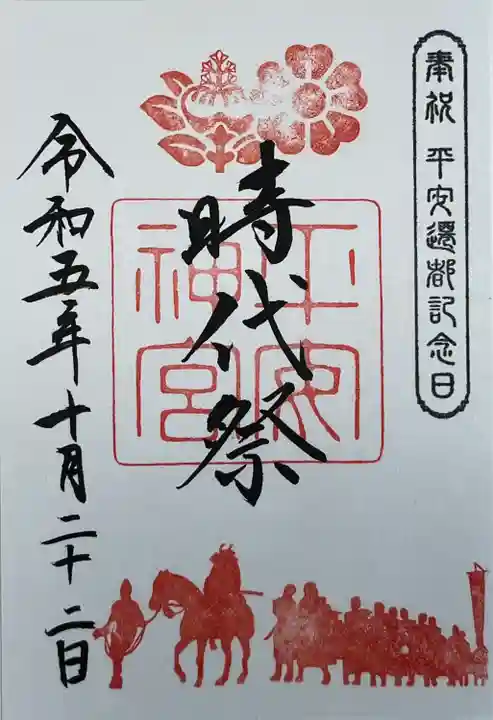 奉祝 平安遷都記念日
時代祭
平安
神宮
令和五年十月二十二日